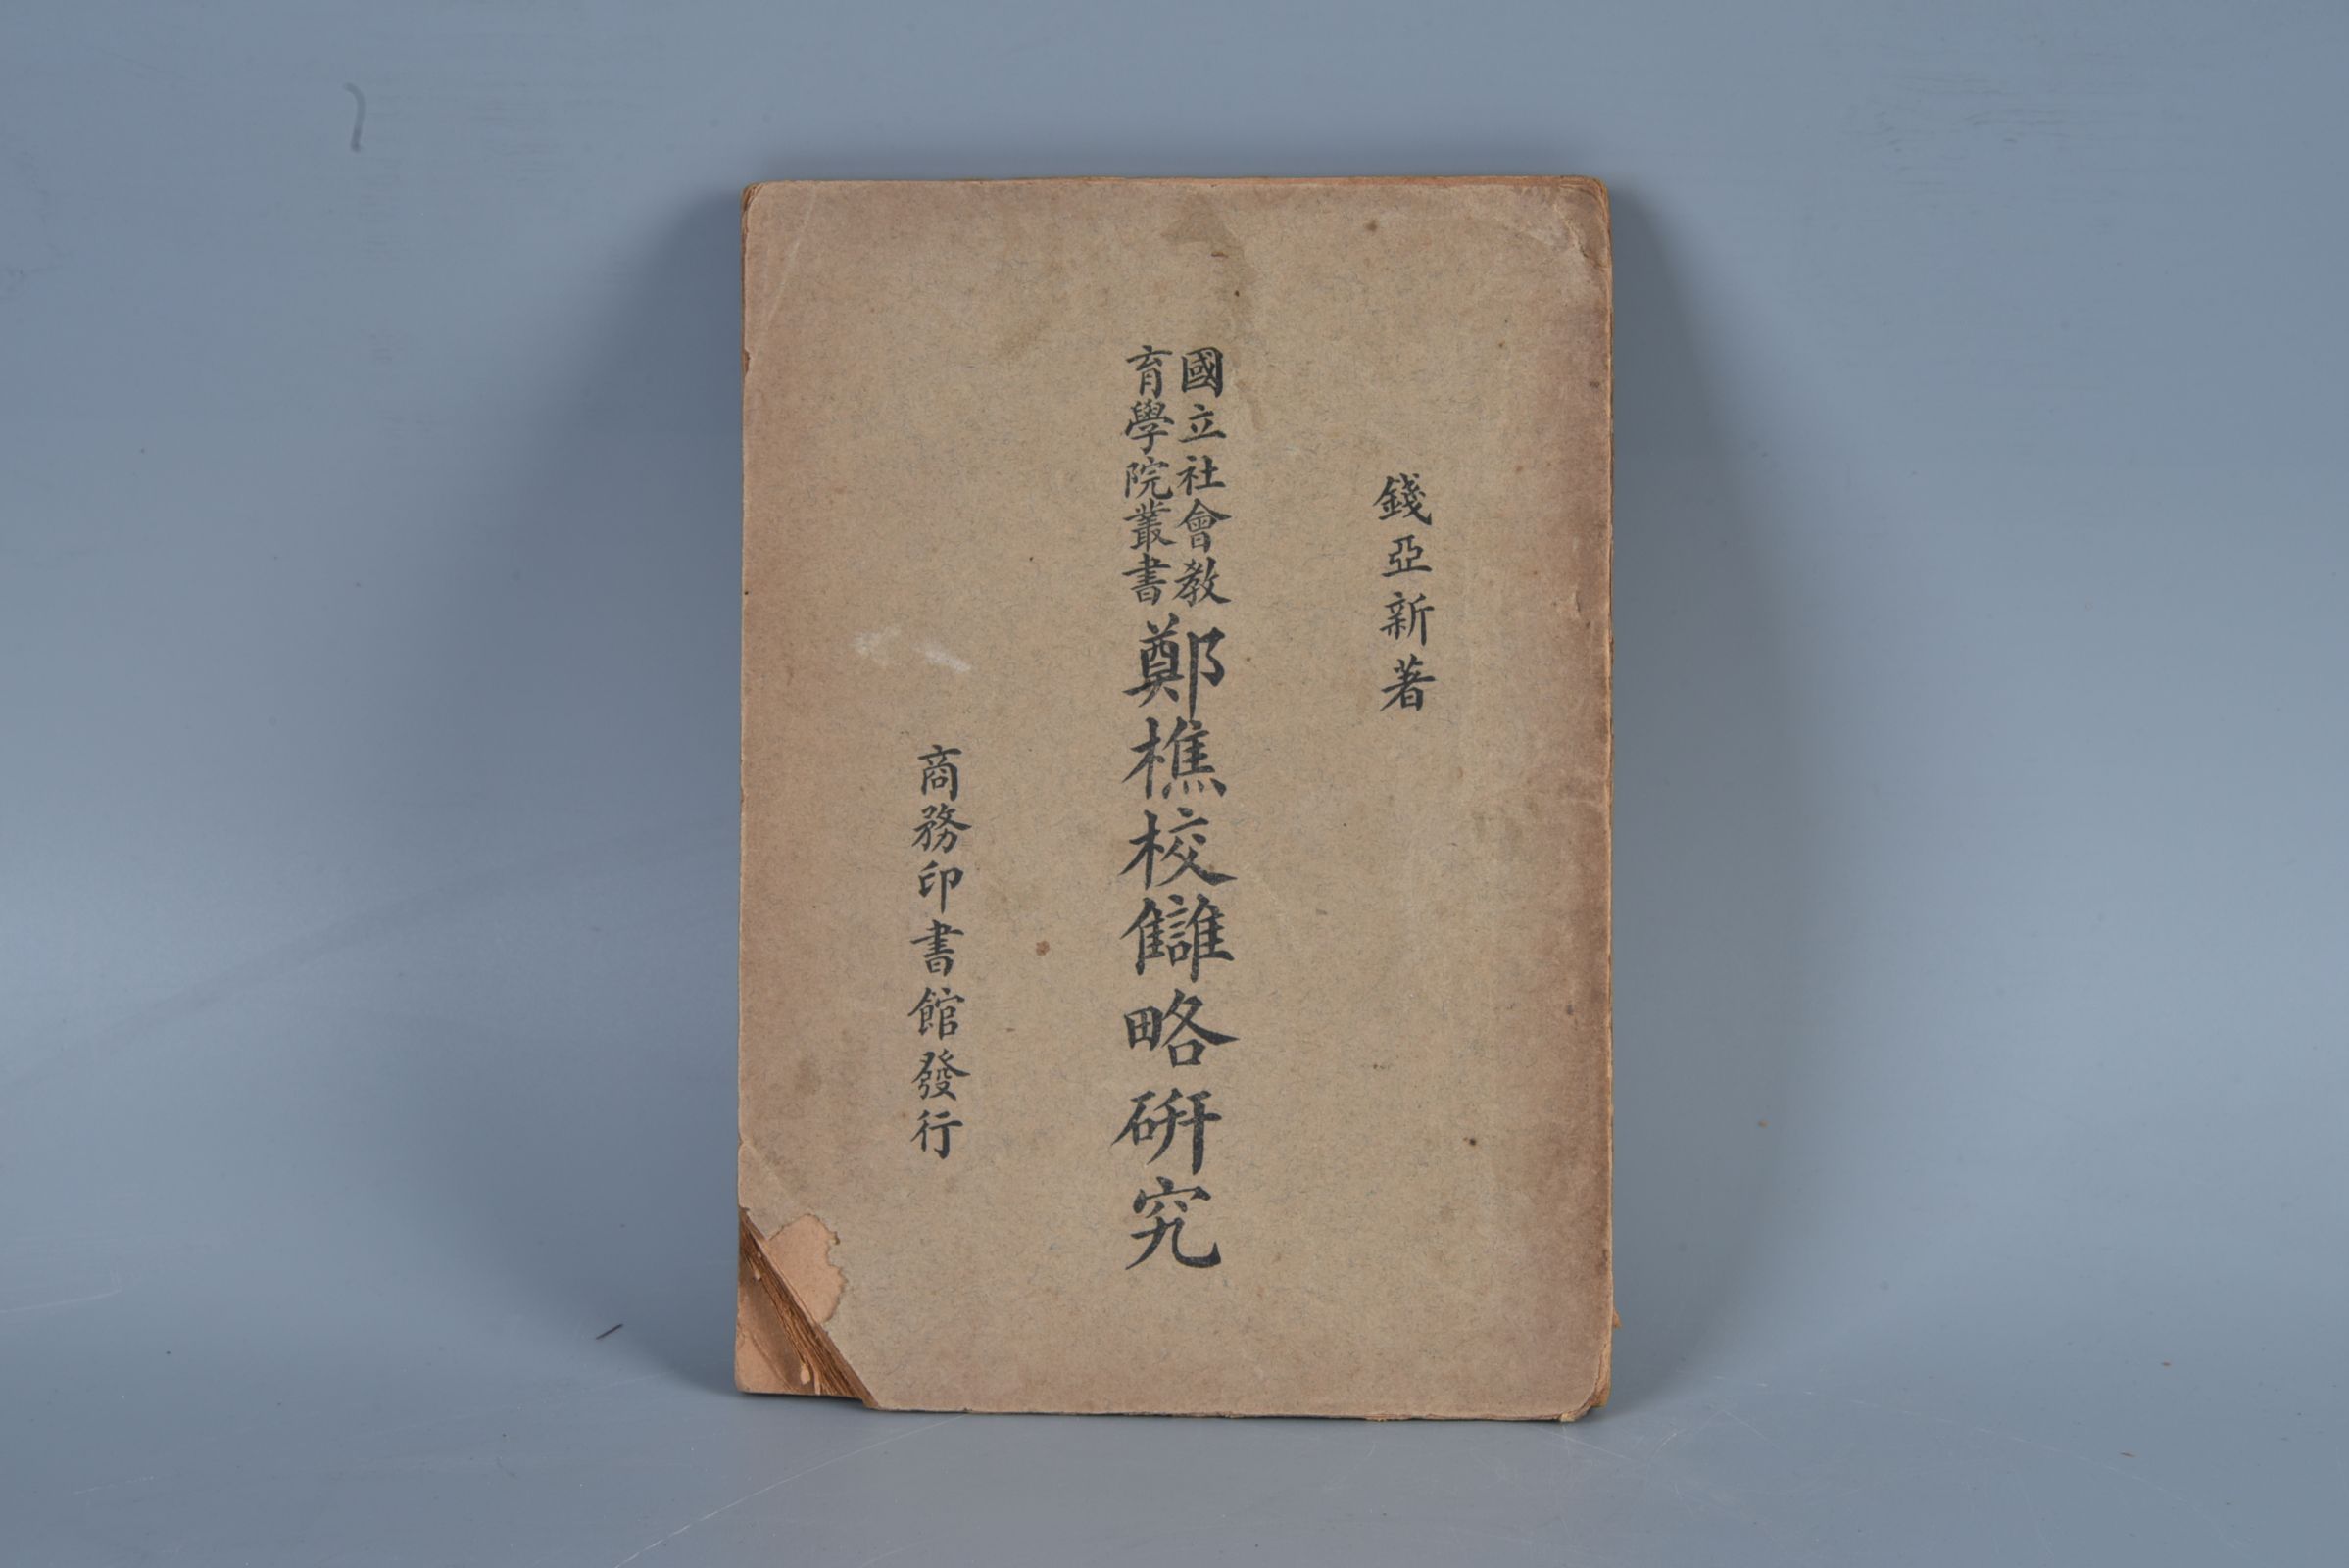 錢亞新著
國立社會教
育學院叢書
鄭樵校讎略硏究
商務印書館發行